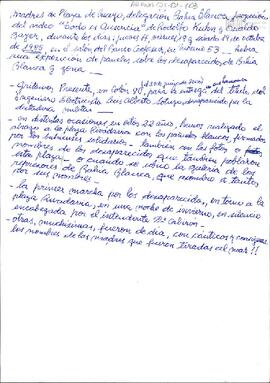 madres de Plaza de Mayo, delegación Bahía Blanca, proyección
del video "Todo es Ausencia" de Rodolfo Kuhn y Osvaldo
Bayer, durante los días; jueves 17, viernes 18 y sábado 19 de octubre
de 1985, en el salón del               53 - hubo
una exposición de paneles sobre los desaparecidos de Bahía
Blanca y zona -
- Gustavo, Presente, en color 98, para la entrega del título, del
Ingeniero electricista, Luis Alberto          , desaparecido por la
dictadura militar
- en distintas ocasiones en estos 22 años, hemos realizado el
abrazo a la plaza Rivadavia con los pañuelos blancos, formados
por los              solidarios - También con las fotos
nombres de los desaparecidos que también poblaron
esta plaza - o cuando se         la galería de los
represores de Bahía Blanca, que nombro a tantos
por sus nombres -
- la primer marcha por los desaparecidos, en torno a la
plaza Rivadavia, en una noche de invierno, en silencio
encabezada por el intendente Dr Cabirón -
- otras, muchísimas, fueron de día, con cánticos y consignas
los nombres de las madres que fueron tiradas al mar!!